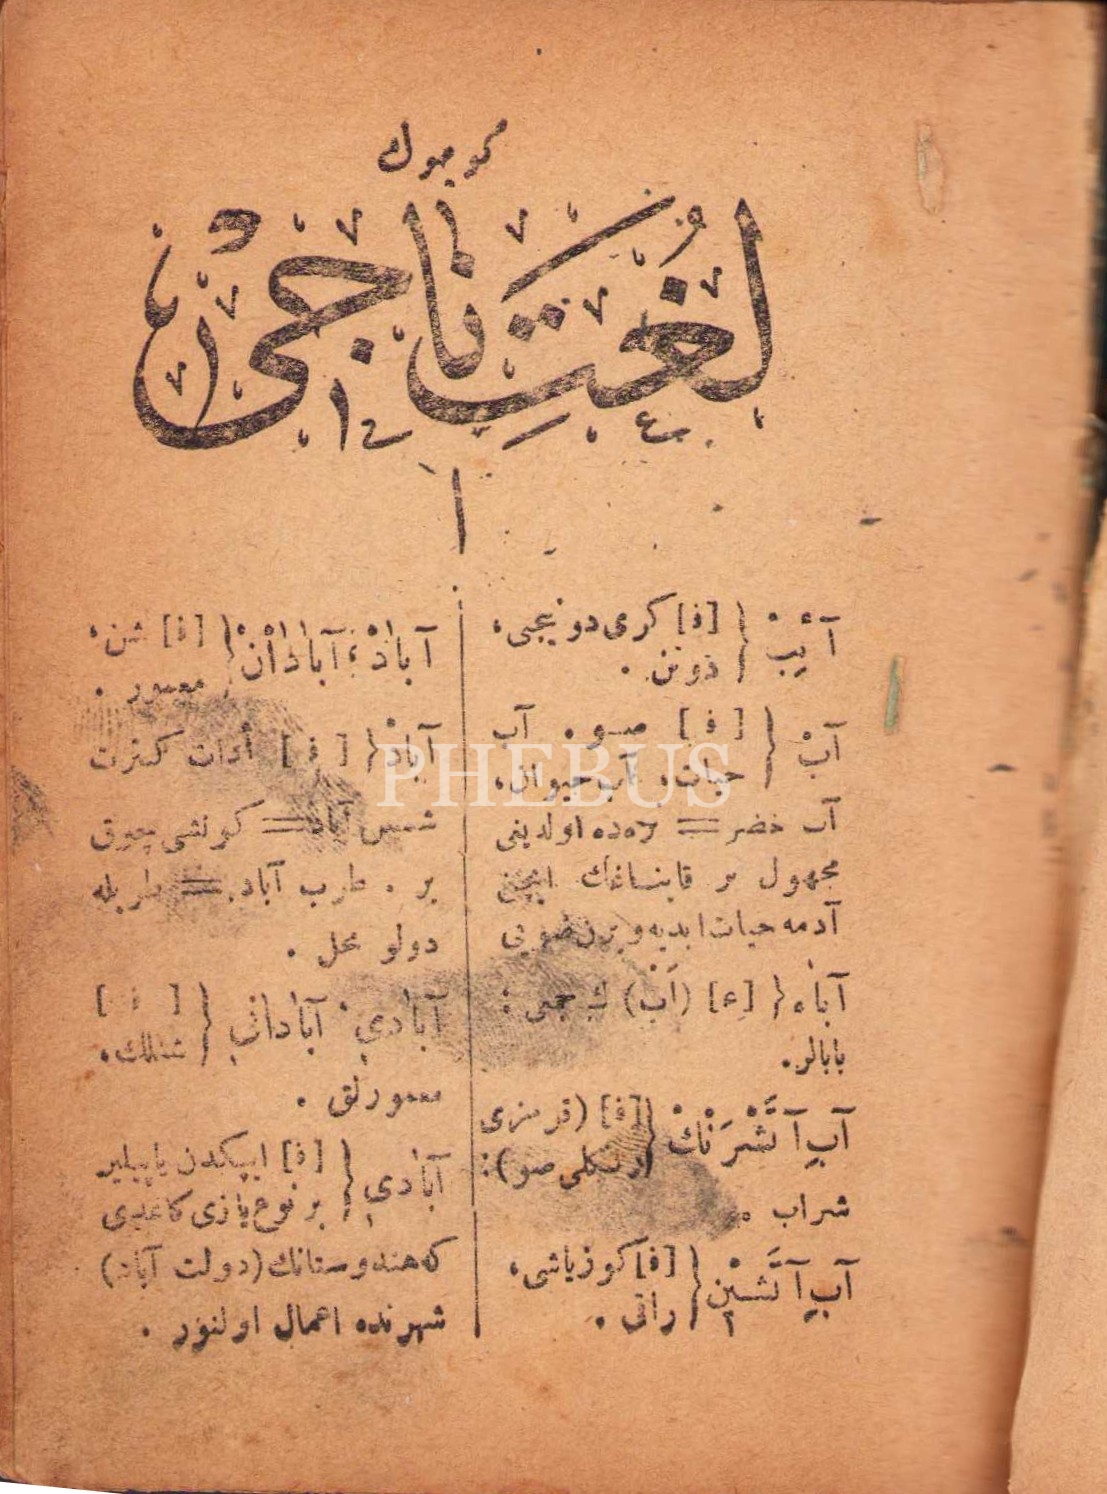 كوچوك
لُغَتِ نَاجِى
ا
آئِبْ { [ف] كرى دونيجى،
دونن .
آبْ { [ف] صو . آب
حيات، آب حيوان،
آب خضر = نره‌ده اولديغى
مجهول بر قايناغك ايچن
آدمه حيات ابديه ويرن صويى
آباه { [ع] (اَبْ) ك جمى :
بابالر.
آبِ آتَشْرَنْكْ { [ف] (قرمزى
رنكلى صو) :
شراب .
آبِ آتَشْين { [ف] كوزياشى،
راقى .
آبادْ ، آبادانْ { [ف] شن ،
معمور .
آبادْ { [ف] أدات كثرت
شمس آباد = كونشى چوق
ير . طرب آباد = طربله
دولو محل .
آبادى، آبادانى { [ف]
شنلك،
معمورلق .
آبادى { [ف] ايپكدن ياپيلير
بر نوع يازى كاغدى
كه هندوستانك (دولت آباد)
شهرنده اعمال اولنور .
PHEBUS